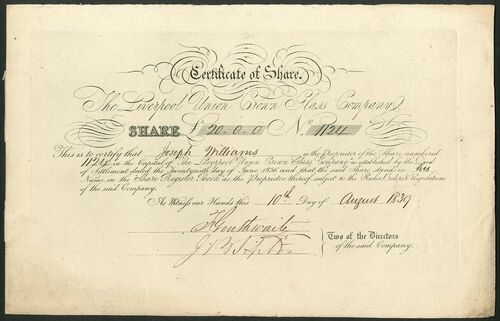 Certificate of Share.
The Liverpool Union Crown Glass Company,
SHARE £ 20.0.0 No. 1124
This is to certify that Joseph Williams is the Proprietor of the Share numbered
1124 in the Capital of "The Liverpool Union Crown Glass Company" as established by the Deed
of Settlement dated the Twentysixth day of June 1836 and that the said Share stands in his
Name in the Share Register Book as the Proprietor thereof subject to the Rules, Orders & Regulations
of the said Company.
As Witness our Hands this 10th Day of August 1839
Two of the Directors
of the said Company.